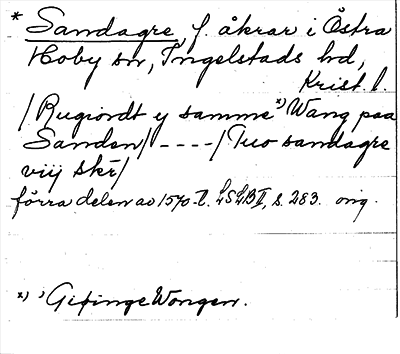 * Sandagre, f. åkrar i Östra
Hoby sn, Ingelstads hd,
Krist. l.
/Rugiordt y samme *) Wang paa
Sanden/ ----/Tuo sandagre
viij skr/
förra delen av 1570-t. LSLB II, s. 283. orig.
*) ) Gisinge Wongen.